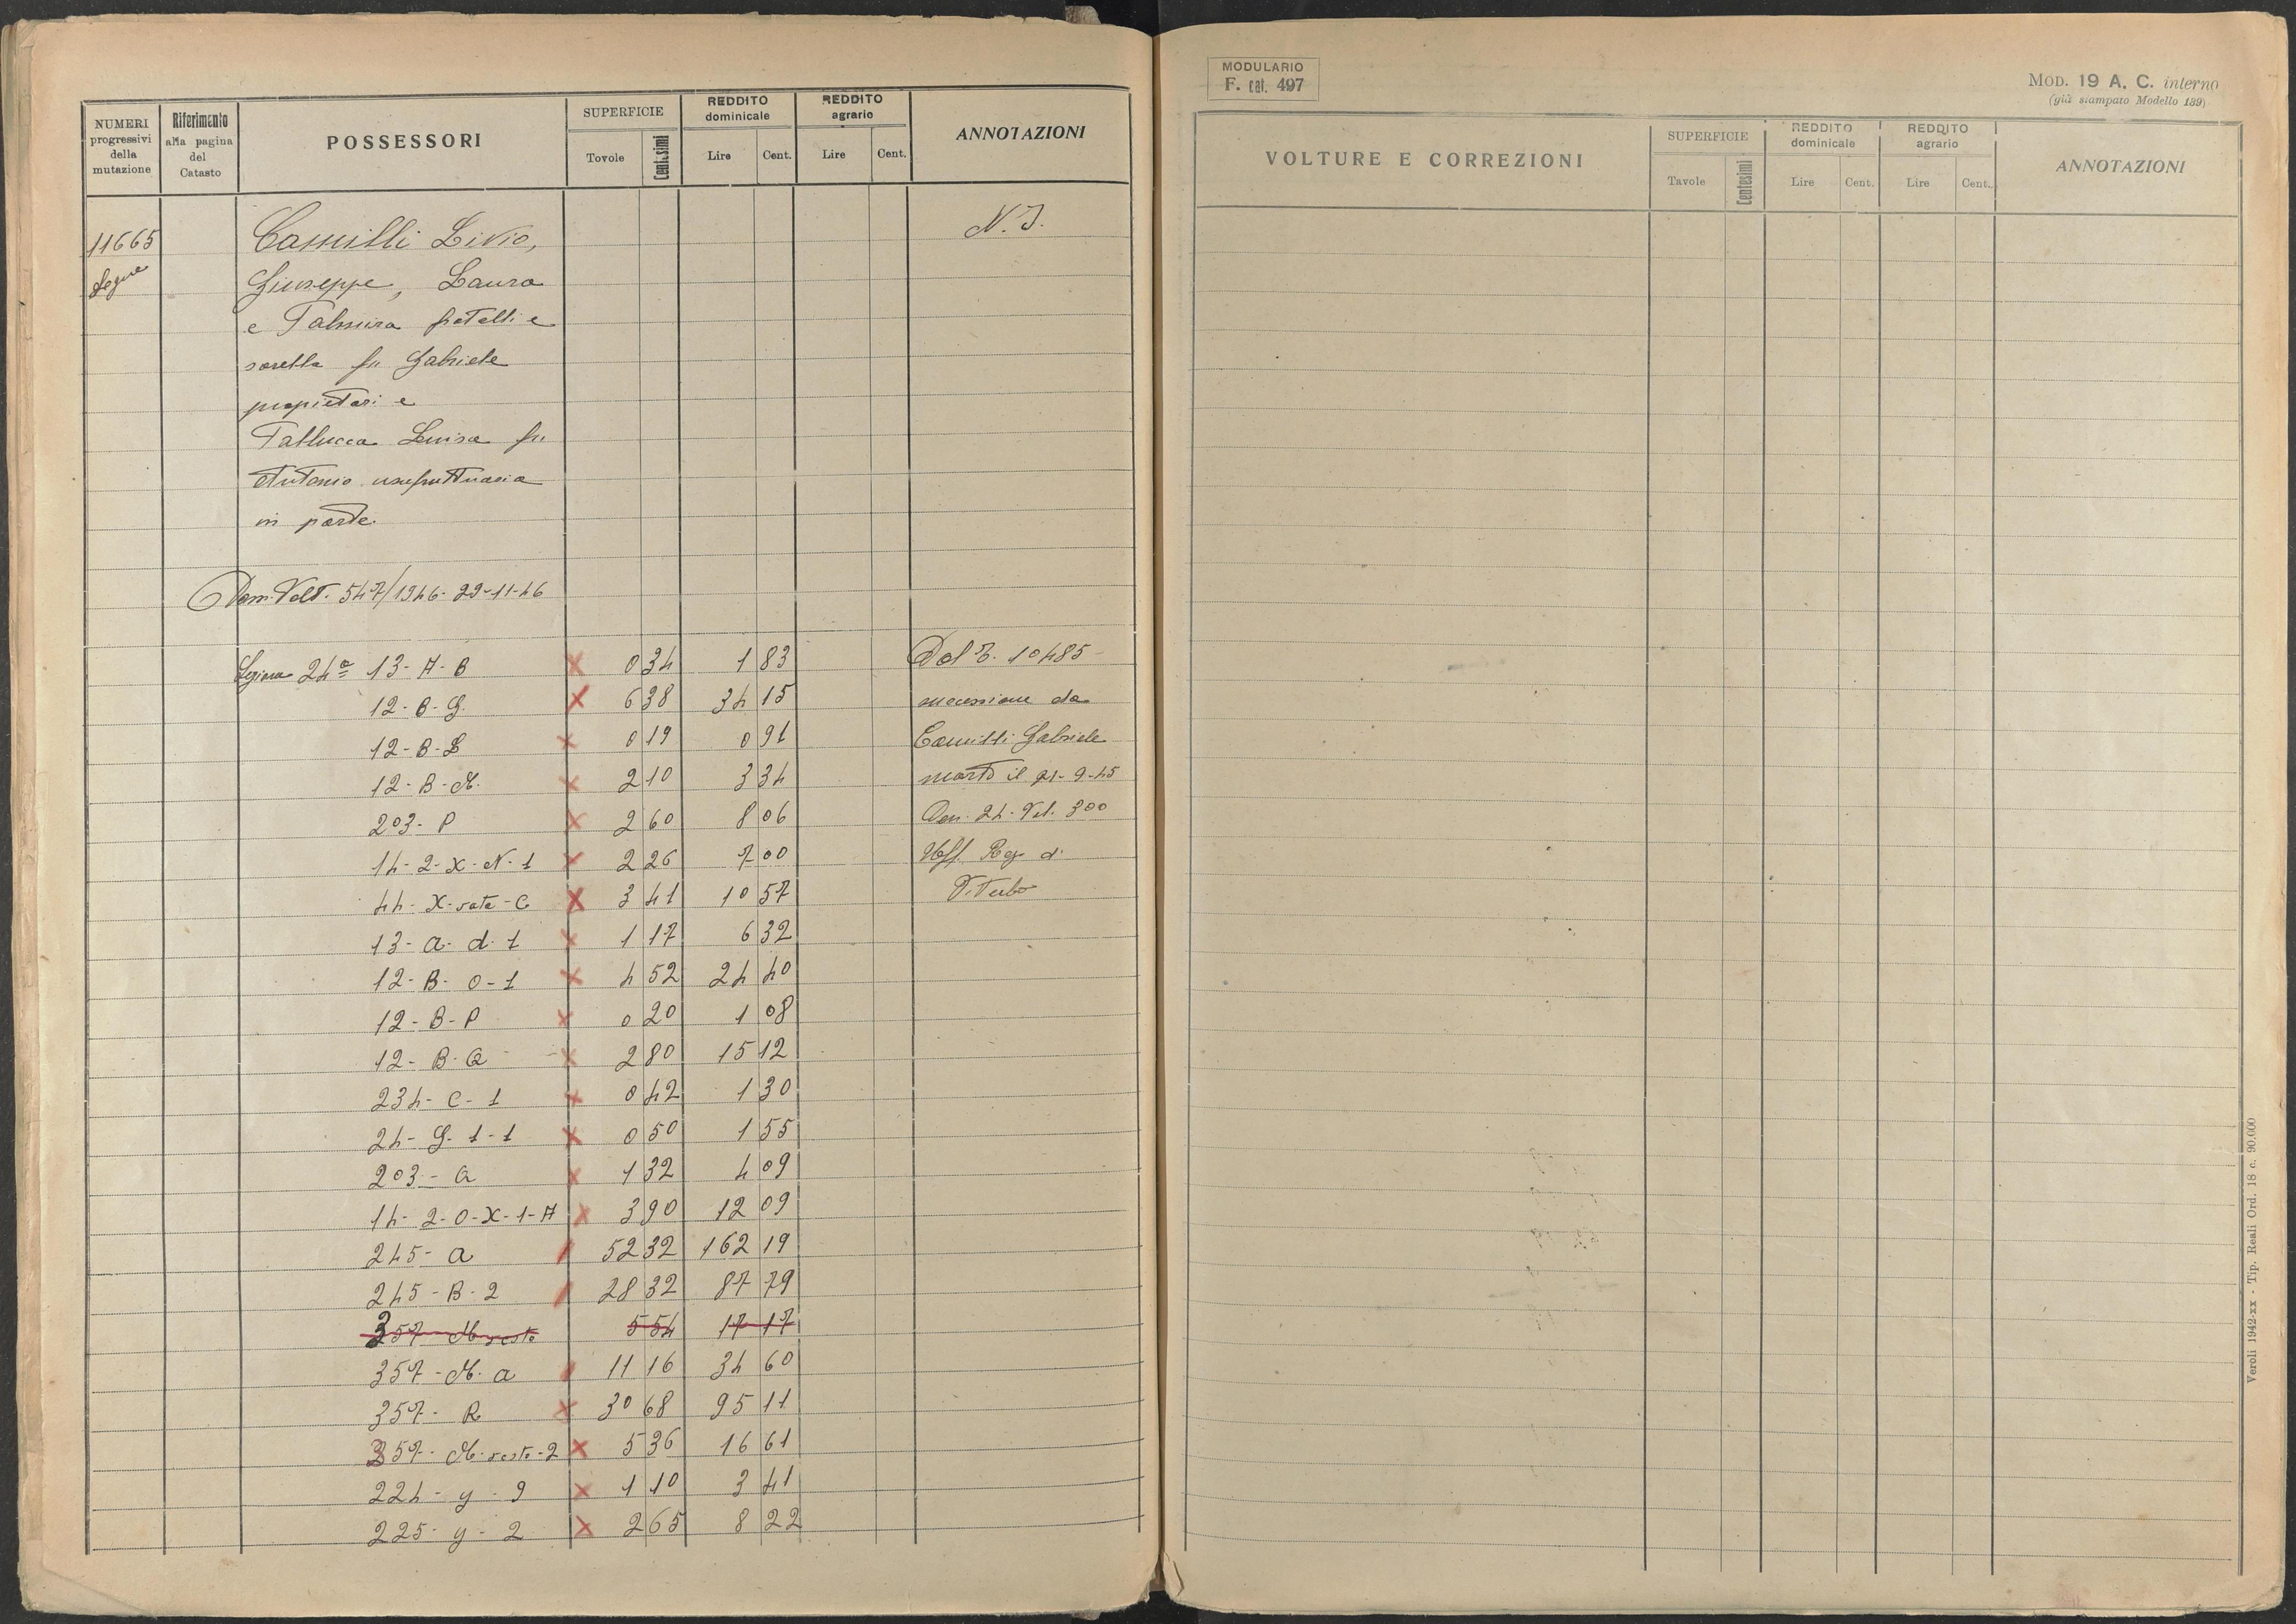 NUMERI progressivi della mutazione | Riferimento alla pagina del Catasto | POSSESSORI | SUPERFICIE Tovole Centesimi | REDDITO dominicale Lire Cent. | REDDITO agrario Lire Cent. | ANNOTAZIONI
11665 Camilli Livio, N. I.
Segue Giuseppe, Laura
e Palmira fratelli e
sorella fu Gabriele
propietari e
Tallucca Luisa fu
Antonio usufruttuaria
in parte.
Dom. Volt. 547/1946- 29-11-46
24ª 13- A- B 0 34 1 83 Dal 10485
12- B- G. 6 38 34 15 successione da
12- B- L 0 19 0 91 Camilli Gabriele
12- B- M. 2 10 3 34 morto il 21-9-45
203- P 2 60 8 06 Den. 24. Vol. 300
14- 2- X- N- 1 2 26 7 00 Uff. Reg. di
44- X- rata- C 3 41 10 57 Viterbo
13- a- d- 1 1 17 6 32
12- B- O- 1 4 52 24 40
12- B- P 0 20 1 08
12- B- Q 2 80 15 12
234- C- 1 0 42 1 30
24- G- 1- 1 0 50 1 55
203- a 1 32 4 09
14- 2- O- X- 1- A 3 90 12 09
245- a 52 32 162 19
245- B- 2 28 32 87 79
357 M resto 5 54 17 17
357- M. a 11 16 34 60
357- R 30 68 95 11
357- M- resto- 2 5 36 16 61
224- y- 9 1 10 3 41
225- y- 2 2 65 8 22
MODULARIO
F. cat. 497
MOD. 19 A. C. interno
(già stampato Modello 189)
VOLTURE E CORREZIONI | SUPERFICIE Tavole Centesimi | REDDITO dominicale Lire Cent. | REDDITO agrario Lire Cent. | ANNOTAZIONI
Veroli 1942-XX - Tip. Reali Ord. 18 c. 90.000